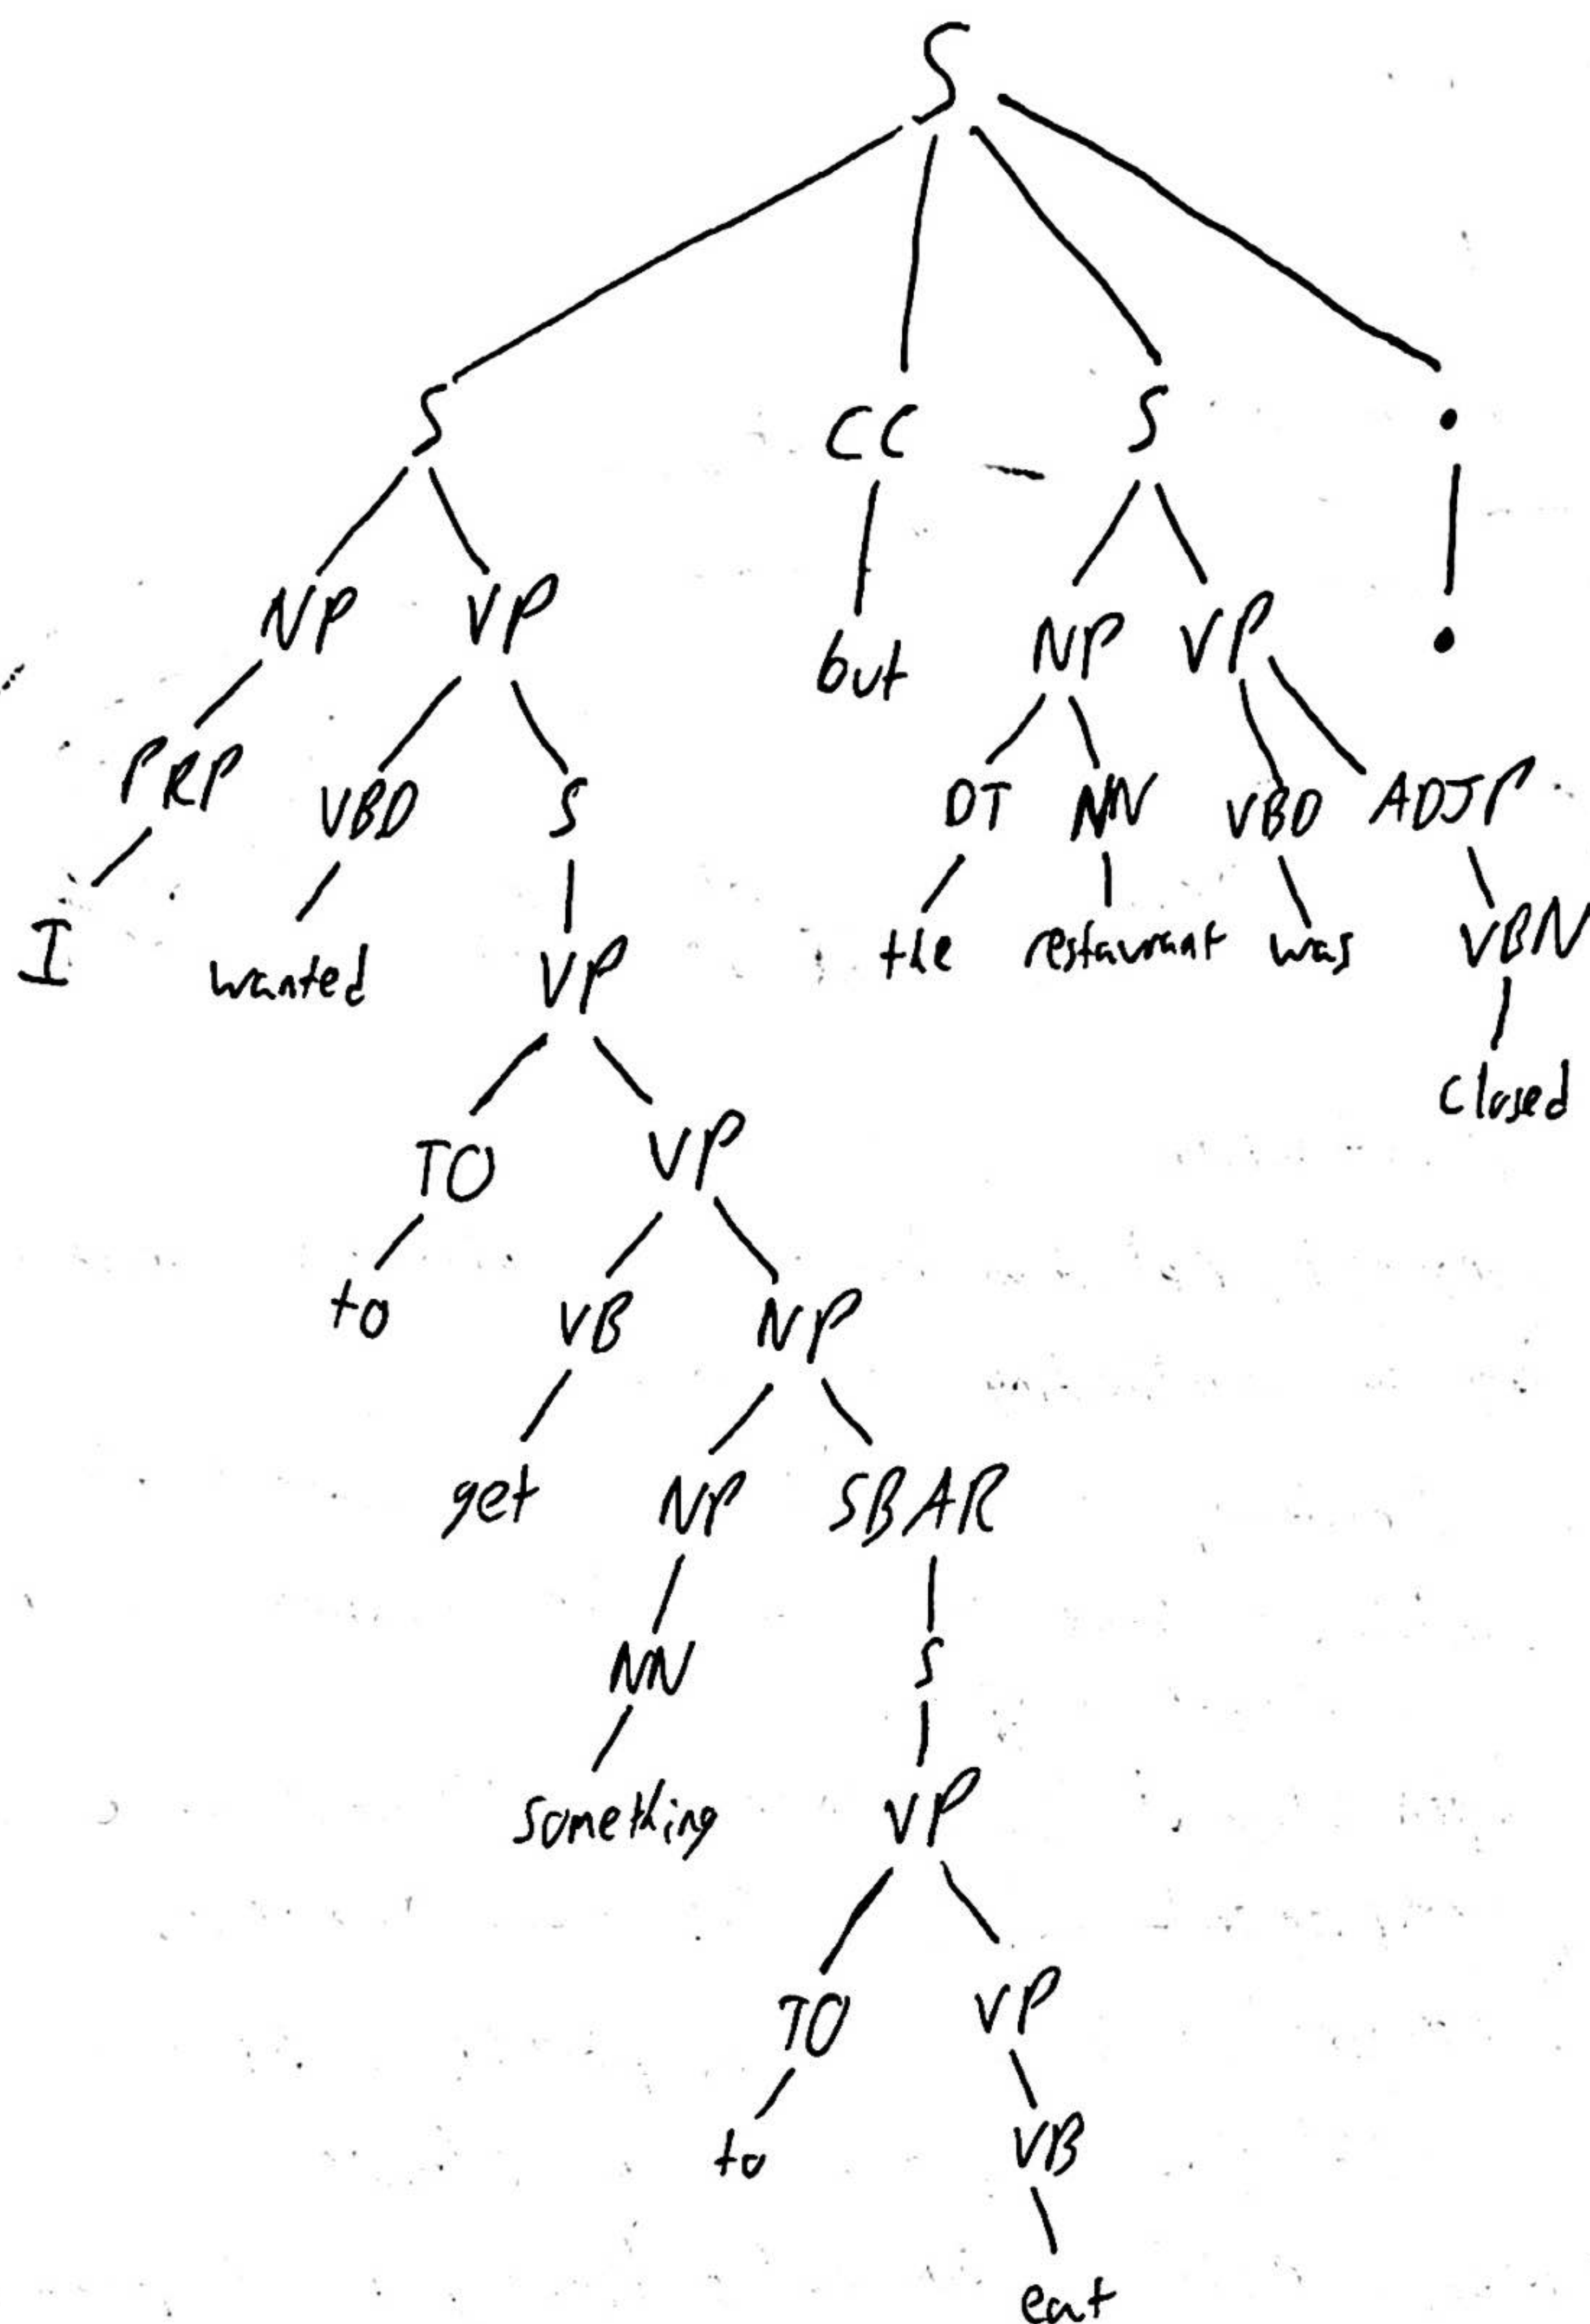 S
S CC S .
NP VP but NP VP .
PRP VBD S DT NN VBD ADJP
I wanted VP the restaurant was VBN
TO VP closed
to VB NP
get NP SBAR
NN S
something VP
TO VP
to VB
eat